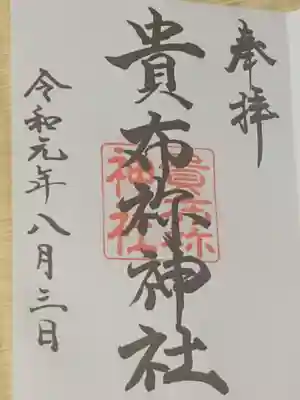 奉拝
貴布祢神社
貴布祢
神社
令和元年八月三日